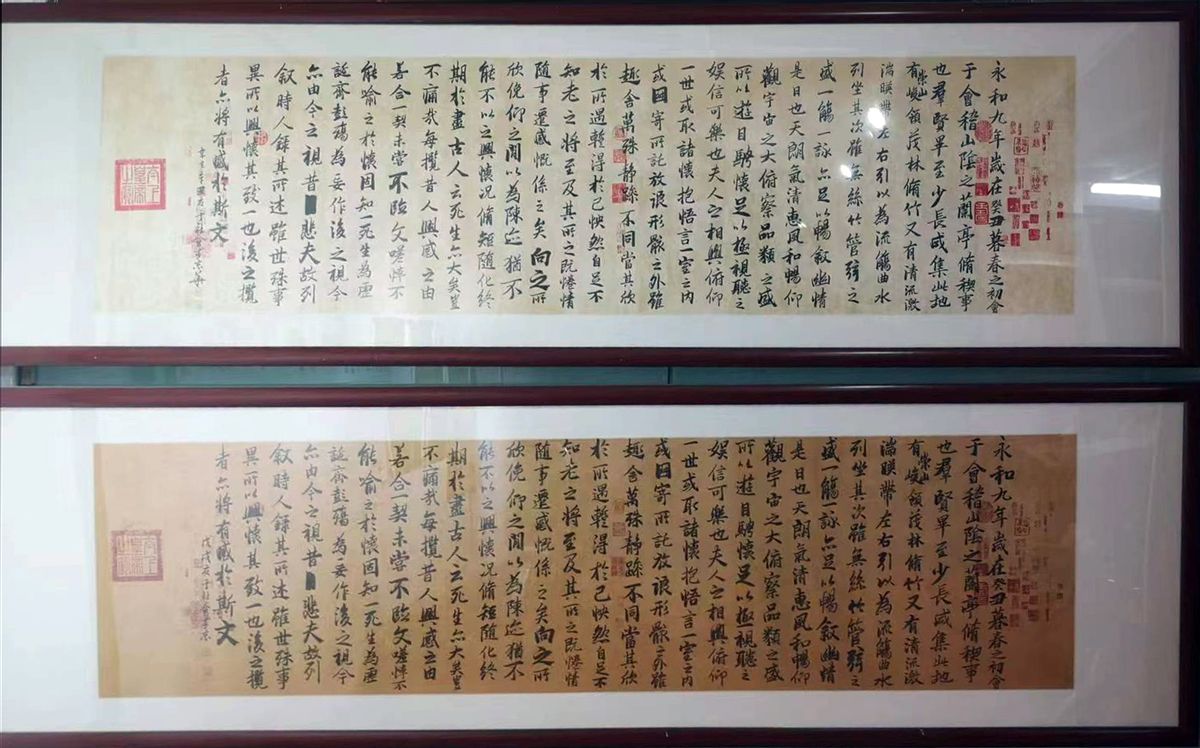 永和九年歲在癸丑暮春之初會
于會稽山陰之蘭亭脩稧事
也羣賢畢至少長咸集此地
有崇山峻領茂林脩竹又有清流激
湍暎帶左右引以為流觴曲水
列坐其次雖無絲竹管弦之
盛一觴一詠亦足以暢敘幽情
是日也天朗氣清惠風和暢仰
觀宇宙之大俯察品類之盛
所以遊目騁懷足以極視聽之
娛信可樂也夫人之相與俯仰
一世或取諸懷抱悟言一室之內
或因寄所託放浪形骸之外雖
趣舍萬殊靜躁不同當其欣
於所遇暫得於己怏然自足不
知老之將至及其所之既惓情
隨事遷感慨係之矣向之所
欣俛仰之閒以為陳迹猶不
能不以之興懷況脩短隨化終
期於盡古人云死生亦大矣豈
不痛哉每攬昔人興感之由
若合一契未嘗不臨文嗟悼不
能喻之於懷固知一死生為虛
誕齊彭殤為妄作後之視今
亦由今之視昔悲夫故列
敘時人錄其所述雖世殊事
異所以興懷其致一也後之攬
者亦將有感於斯文
永和九年歲在癸丑暮春之初會
于會稽山陰之蘭亭脩稧事
也羣賢畢至少長咸集此地
有崇山峻領茂林脩竹又有清流激
湍暎帶左右引以為流觴曲水
列坐其次雖無絲竹管弦之
盛一觴一詠亦足以暢敘幽情
是日也天朗氣清惠風和暢仰
觀宇宙之大俯察品類之盛
所以遊目騁懷足以極視聽之
娛信可樂也夫人之相與俯仰
一世或取諸懷抱悟言一室之內
或因寄所託放浪形骸之外雖
趣舍萬殊靜躁不同當其欣
於所遇暫得於己怏然自足不
知老之將至及其所之既惓情
隨事遷感慨係之矣向之所
欣俛仰之閒以為陳迹猶不
能不以之興懷況脩短隨化終
期於盡古人云死生亦大矣豈
不痛哉每攬昔人興感之由
若合一契未嘗不臨文嗟悼不
能喻之於懷固知一死生為虛
誕齊彭殤為妄作後之視今
亦由今之視昔悲夫故列
敘時人錄其所述雖世殊事
異所以興懷其致一也後之攬
者亦將有感於斯文